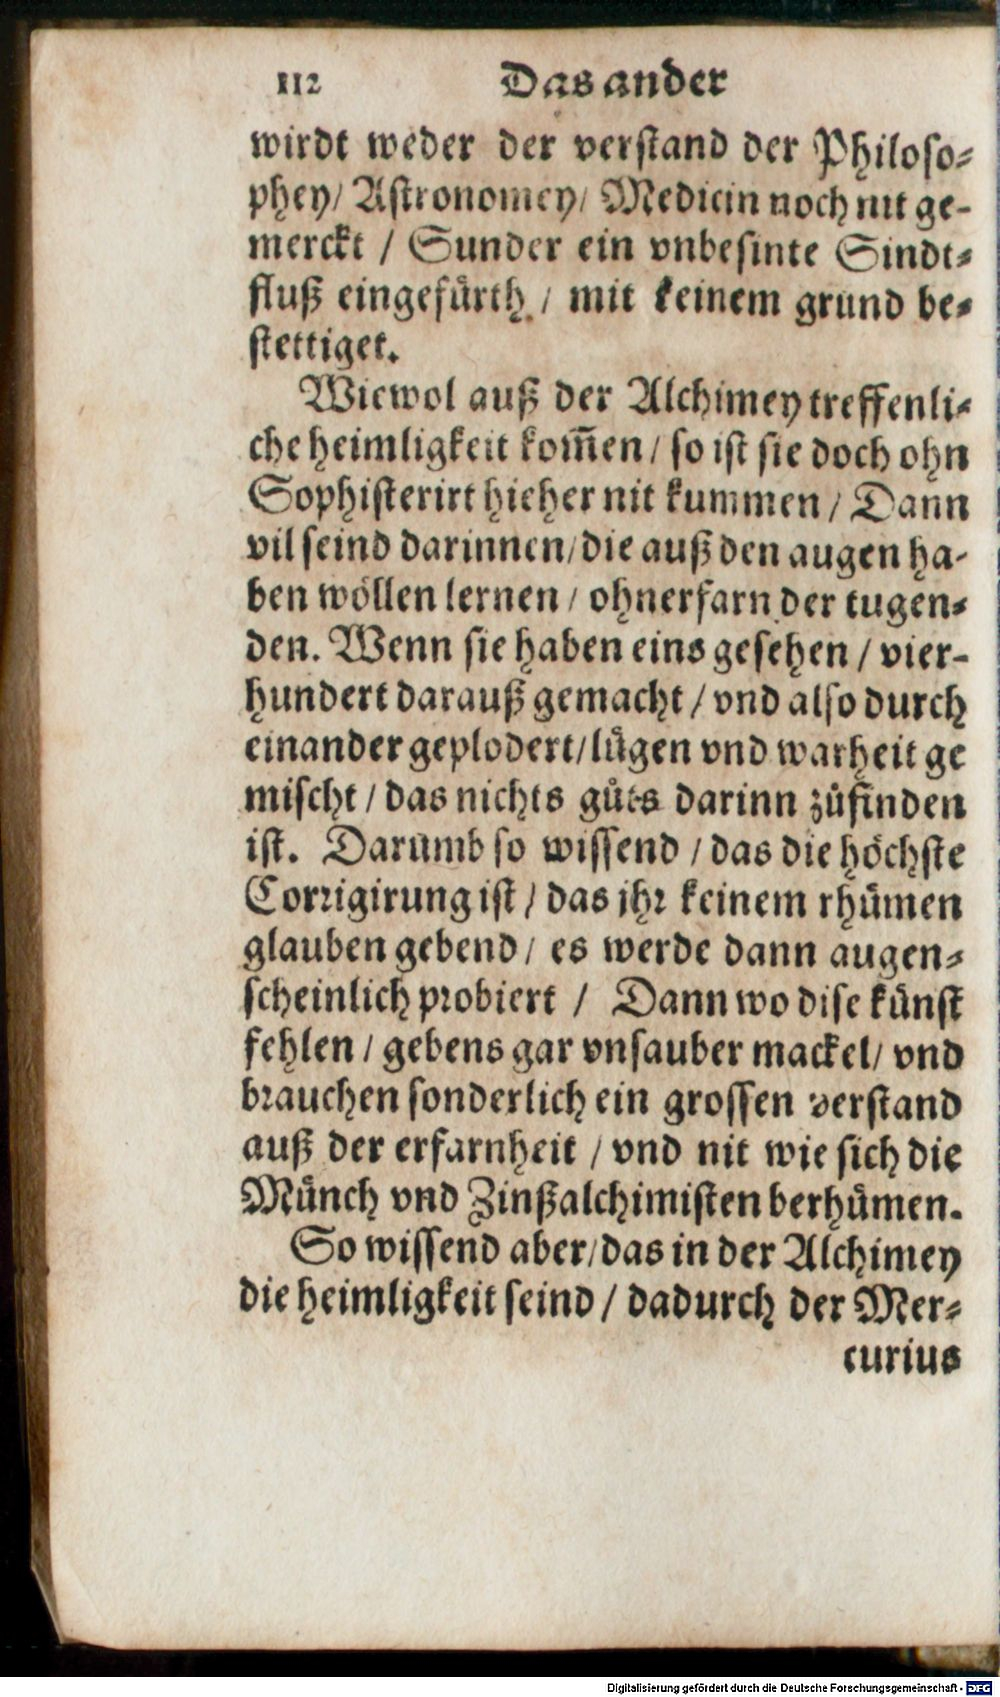 112 Das ander
wirdt weder der verstand der Philoso-
phey/ Astronomey/ Medicin noch nit ge-
merckt / Sunder ein vnbesinte Sindt-
fluß eingefürth / mit keinem grund be-
stettiget.
Wiewol auß der Alchimey treffenli-
che heimligkeit kom̄en / so ist sie doch ohn
Sophisterirt hieher nit kummen / Dann
vil seind darinnen/die auß den augen ha-
ben wöllen lernen / ohnerfarn der tugen-
den. Wenn sie haben eins gesehen / vier-
hundert darauß gemacht / vnd also durch
einander geplodert/lügen vnd warheit ge
mischt / das nichts gůts darinn zůfinden
ist. Darumb so wissend / das die höchste
Corrigirung ist / das jhr keinem rhümen
glauben gebend / es werde dann augen-
scheinlich probiert / Dann wo dise künst
fehlen / gebens gar vnsauber mackel/ vnd
brauchen sonderlich ein grossen verstand
auß der erfarnheit / vnd nit wie sich die
Münch vnd Zinßalchimisten berhümen.
So wissend aber/das in der Alchimey
die heimligkeit seind / dadurch der Mer-
curius
Digitalisierung gefördert durch die Deutsche Forschungsgemeinschaft - DFG